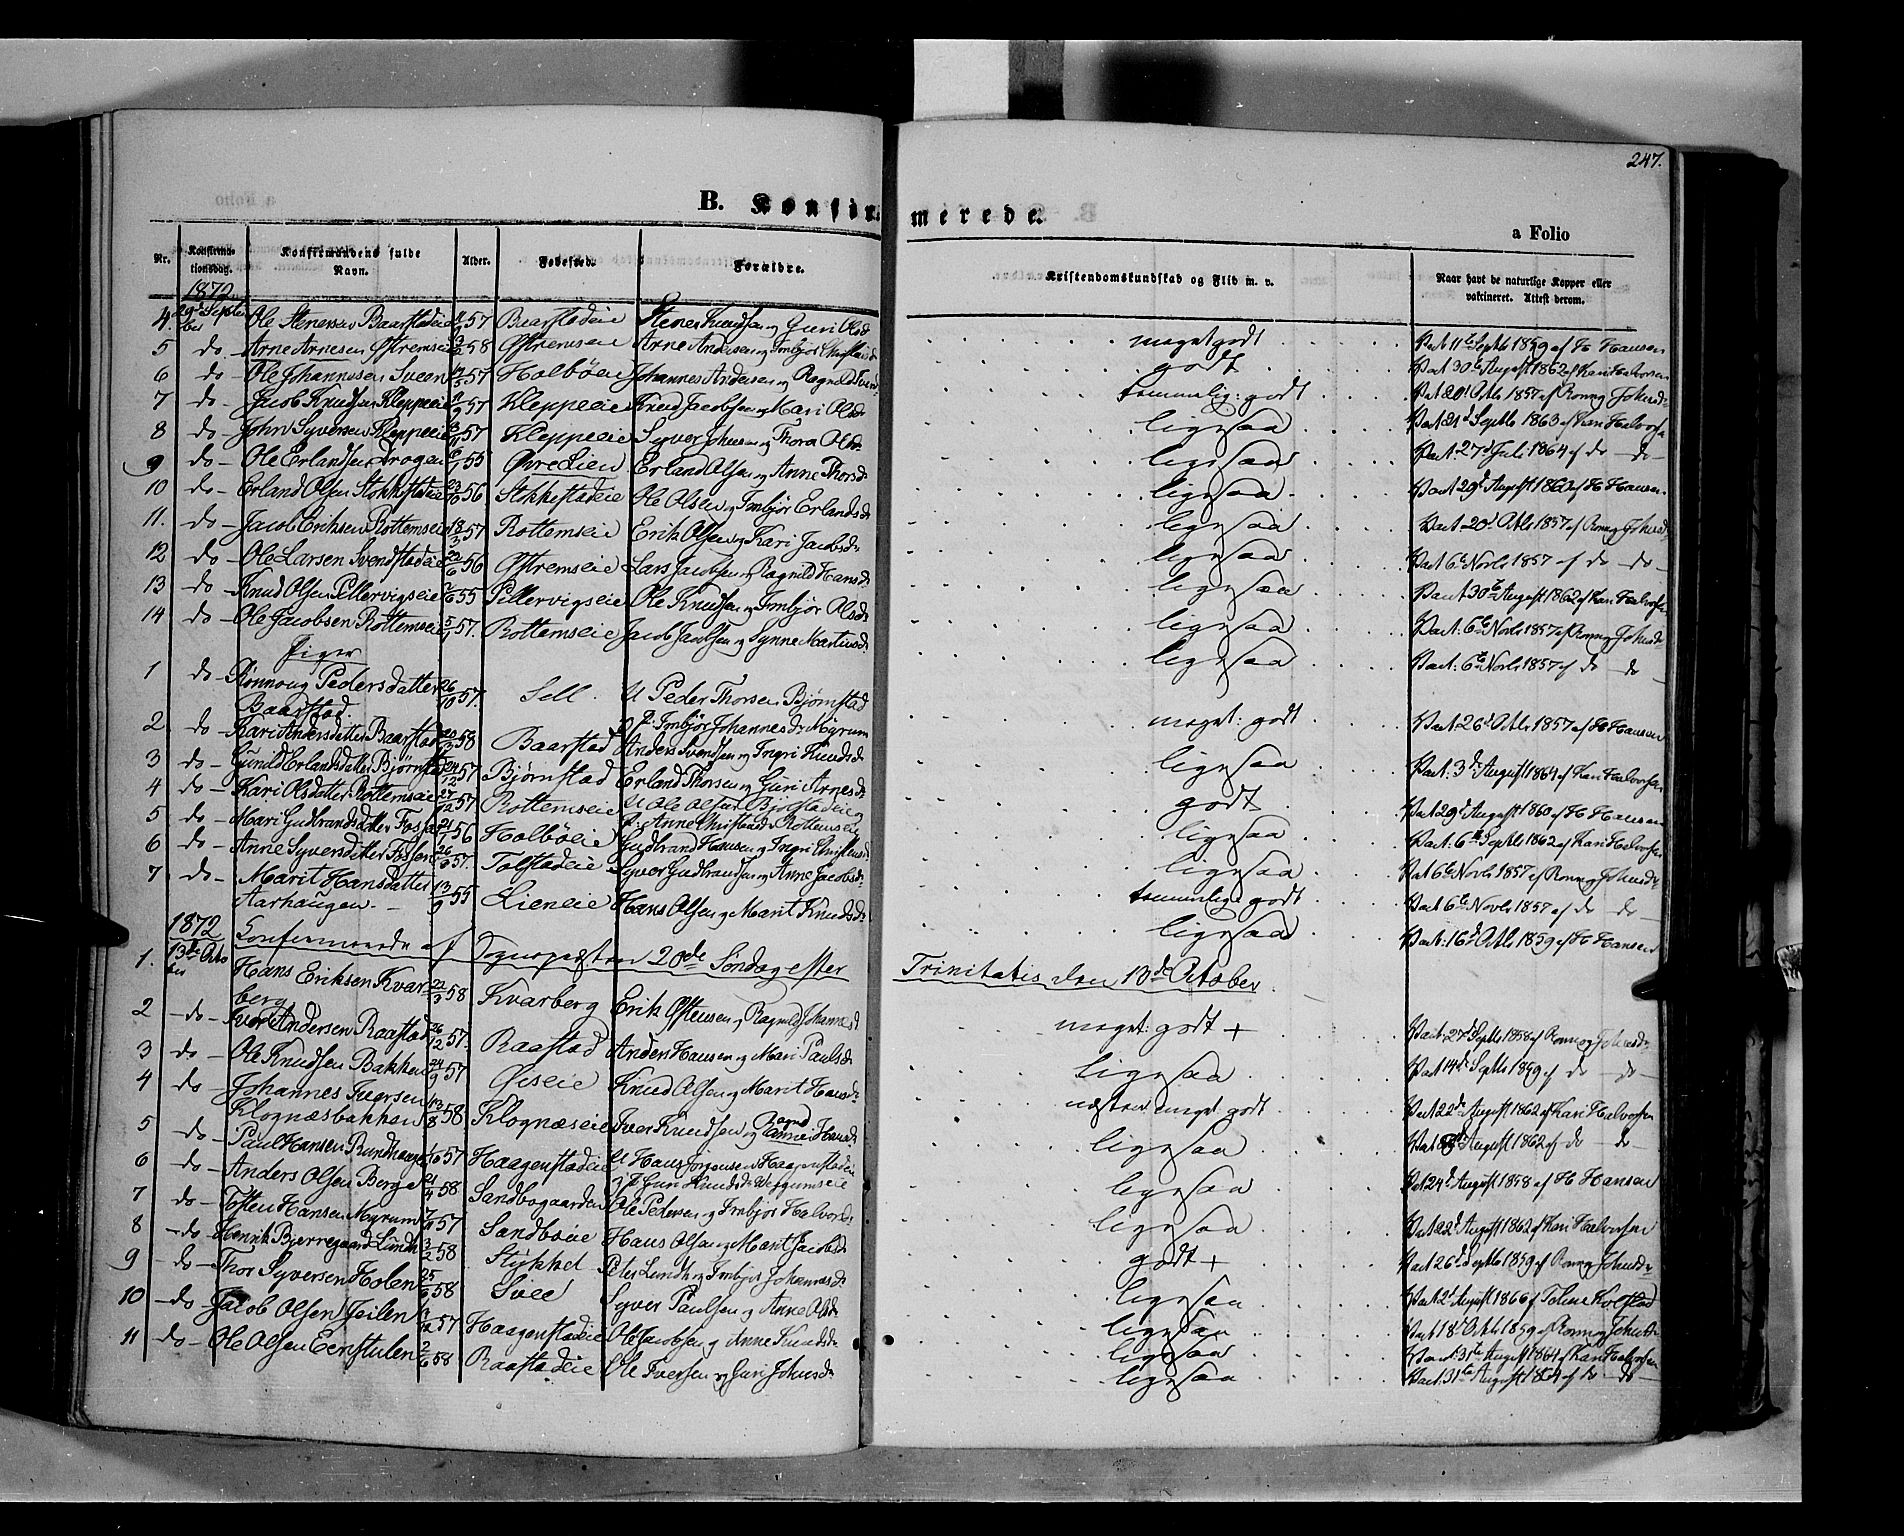 247.
B. Konfirmerede.
a Folio
Nr. Konfirmationsdag. Konfirmandens fulde Navn. Alder. Fødested. Forældre. Kristendomskundskab og Flid m. v. Naar havt de naturlige Kopper eller vakcineret. Attest derom.
1872
4. 29de Septbr Ole Stenersen Baarstadeie 57 Baarstadeie Stener Knudsen og Guri Olsd: meget godt Vact 11te Septb 1859 af H Hansen
5 do Arne Arnesen Øftremseie 58 Øftremseie Arne Andersen og Imbjør godt Vact 30te August 1862 af Kari Halvorsen
6 do Ole Johannesen Sveen 57 Holbøeie Johannes Andersen og Ragnild temmelig: godt Vact 20d Octb 1857 af Ronnog Johnsd:
7 do Jacob Knudsen Kleppeeie 57 Kleppeeie Knud Jacobsen og Mari Olsd: ligesaa Vact 21d Septb 1863 af Kari Halvorsen
8 do John Syversen Kleppeeie 57 Kleppeeie Syver Johnsen og Thora Olsd: ligesaa Vact: 27d Juli 1864 af do do
9 do Ole Erlandsen Krogen 55 Øvre Lien Erland Olsen og Anne Thorsd: ligesaa Vact 29d August 1862 af H Hansen
10 do Erland Olsen Stokkestadeie 56 Stokkestadeie Ole Olsen og Imbjør Erlandsd: ligesaa Vact 20d Octb 1857 af Ronnog Johnsd:
11. do Jacob Eriksen Rottemseie 18/3 57 Rottemseie Erik Olsen og Kari Jacobsd: ligesaa Vact 6te Novb 1857 af do do
12 do Ole Larsen Svendstadeie 56 Øftremseie Lars Jacobsen og Ragnild Hansd: ligesaa Vact 30te August 1862 af Kari Halvorsen
13 do Knud Olsen Pillervigseie 55 Pillervigseie Ole Knudsen og Imbjør Olsd: ligesaa Vact: 6te Novb 1857 af Ronnog Johnsd:
14 do Ole Jacobsen Rottemseie 57. Rottemseie Jacob Jacobsen og Synne Mortensd: ligesaa Vact: 6te Novb 1857 af do do
Piger
1 do Rønnoug Pedersdatter 26/10 57. Sell. U Peder Thorsen Bjørnstad meget: godt Vact: 26d Octb 1857 af H Hansen
Baarstad. P: Imbjør Johannesd: Myrum
2 do Kari Andersdatter Baarstad 58 Baarstad Anders Svendsen og Ingri Knudsd: ligesaa Vact: 3d August 1864 af Kari Halvorsen
3 do Gunild Erlandsdatter Bjørnstad 57 Bjørnstad Erland Thorsen og Guri Arnesd: godt Vact 29d August 1860 af H Hansen
4 do Kari Olsdatter Rottemseie 27/12 57 Rottemseie U Ole Olsen Bjølstadeie og ligesaa Vact: 6te Septb 1862 af Kari Halvorsen
P: Anne Christiansd: Rottemseie
5 do Mari Gudbrandsdatter Fosse 56 Holbøeie Gudbrand Hansen og Ingri ligesaa Vact 6te Novb 1857 af Ronnog Johnsd:
6 do Anne Syversdatter Fossen 57. Tolstadeie Syver Gudbrandsen og Anne Jacobsd: temmelig: godt Vact 6te Novb 1857 af do do
7 do Marit Hansdatter 13/9 55 Lieneie Hans Olsen og Marit Knudsd: ligesaa Vact: 16d Octb 1859 af H Hansen
Aarhaugen.
1872 Confirmerede af Sognepræsten 20de Søndag efter Trinitatis den 13de October
1. 13de October Hans Eriksen Kvarberg 22/3 58 Kvarberg Erik Øftensen og Ragnild Johannesd: meget: godt + Vact: 27d Septb 1858 af Ronnog Johnsd:
2 do Iver Andersen Raastad 26/12 57. Raastad Anders Hansen og Mari Paulsd: ligesaa Vact 14d Septb 1859 af do do
3 do Ole Knudsen Bakken 24/9 57 Øieie Knud Olsen og Marit Hansd: næsten meget godt Vact: 22de August 1862 af Kari Halvorsen
4 do Johannes Iversen 13/8 58 Klognæseie Iver Knudsen og Ragnd Hansd: ligesaa Vact August 1862 af do do
Klognæsbakken
5 do Paul Hansen Rundhaugen 57 Haagenstadeie U Hans Jørgensen Haagenstadeie ligesaa Vact 24d August 1858 af H Hansen
P Guri Knudsd: Veggumseie
6 do Anders Olsen Berge 21/4 58 Sandbogaarden Ole Pedersen og Imbjør Halvorsd: ligesaa Vact 22d August 1862 af Kari Halvorsen
7 do Tosten Hansen Myrum 57 Sandboeie Hans Olsen og Marit Jacobsd: godt + Vact 26d Septb 1859 af Ronnog Johnsd:
8 do Henrik Bjerregaard Lundh 3/2 58 Stykket Peter Lundh og Imbjør Johannesd: ligesaa Vact 2d August 1866 af Toline Kolstad
9 do Thor Syversen Holen 25/6 58 Svee Syver Paulsen og Anne Olsd: ligesaa Vact 18d Octb 1859 af Ronnog Johnsd:
10 do Jacob Olsen Jeilen 57 Haagenstadeie Ole Jacobsen og Anne Knudsd: ligesaa Vact: 31te August 1864 af Kari Halvorsen
11 do Ole Olsen Eenstulen 2/6 58 Raastadeie Ole Iversen og Guri Johnsd: ligesaa Vact: 31te August 1864 af do do